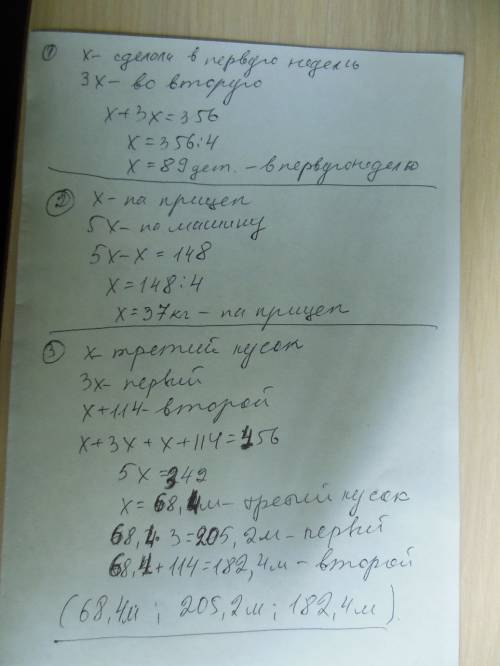 ① х- сделали в первую недель
3х- во вторую
х+3х=356
х=356:4
х=89дет. - в первую неделю
② х- на прицеп
5х- на машину
5х-х=148
х=148:4
х=37кг- на прицеп
③ х- третий кусок
3х- первый
х+114- второй
х+3х+х+114=456
5х=342
х=68,4м- третий кусок
68,4·3=205,2м- первый
68,4+114=182,4м- второй
(68,4м; 205,2м; 182,4м).